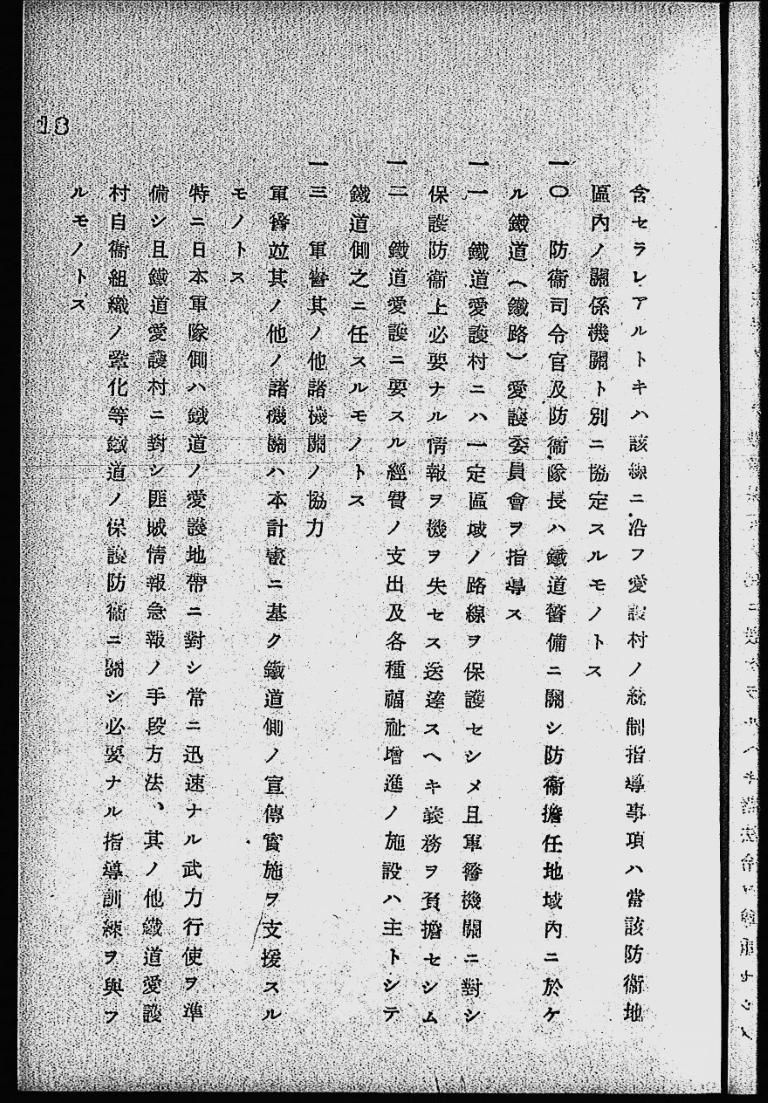 含セラレアルトキハ該線ニ沿フ愛護村ノ統制指導事項ハ當該防衞地
區內ノ關係機關ト別ニ協定スルモノトス
一〇　防衞司令官及防衞隊長ハ鐵道警備ニ關シ防衞擔任地域內ニ於ケ
ル鐵道（鐵路）愛護委員會ヲ指導ス
一一　鐵道愛護村ニハ一定區域ノ路線ヲ保護セシメ且軍警機關ニ對シ
保護防衞上必要ナル情報ヲ機ヲ失セス送達スヘキ義務ヲ負擔セシム
一二　鐵道愛護ニ要スル經費ノ支出及各種福祉增進ノ施設ハ主トシテ
鐵道側之ニ任スルモノトス
一三　軍警其ノ他諸機關ノ協力
軍警竝其ノ他ノ諸機關ハ本計畫ニ基ク鐵道側ノ宣傳實施ヲ支援スル
モノトス
特ニ日本軍隊側ハ鐵道ノ愛護地帶ニ對シ常ニ迅速ナル武力行使ヲ準
備シ且鐵道愛護村ニ對シ匪賊情報急報ノ手段方法、其ノ他鐵道愛護
村自衞組織ノ鞏化等鐵道ノ保護防衞ニ關シ必要ナル指導訓練ヲ與フ
ルモノトス
18